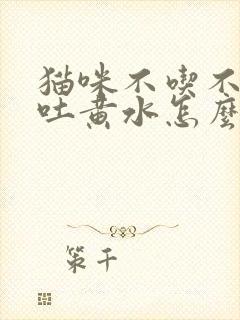 猫咪不喫不
吐黄水怎麽
策千